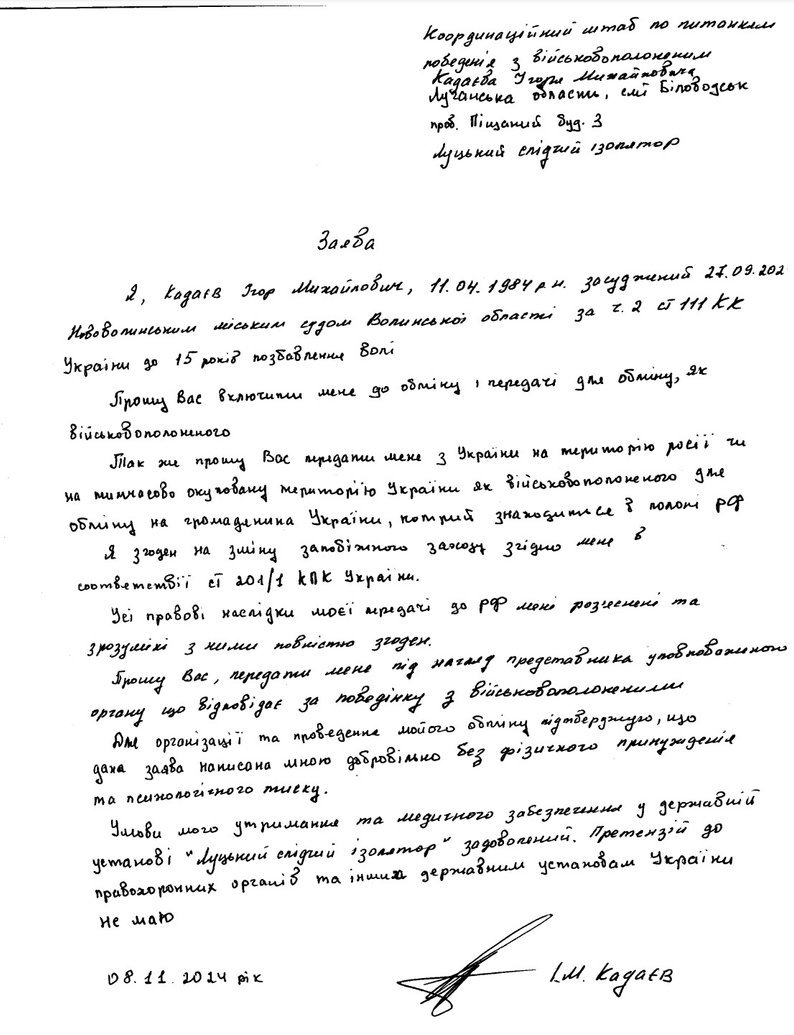 Координаційний штаб по питанням
поведеня з військовополоненим
Кадаєва Ігоря Михайловича
Луганська область, смт Біловодськ
пров. Піщаний буд. 3
Луцький слідчий ізолятор
Заява
Я, Кадаєв Ігор Михайлович, 11.04.1984 р.н. засуджений 27.09.202
Нововолинським міським судом Волинської області за ч. 2 ст 111 КК
України до 15 років позбавлення волі
Прошу Вас включити мене до обміну і передачі для обміну, як
військовополоненого
Так же прошу Вас передати мене з України на територію росії чи
на тимчасово окуповану територію України як військовополоненого для
обміну на громаденина України, котрий знаходиться в полоні РФ
Я згоден на зміну запобіжного заходу згідно мене в
соответствії ст 201/1 КПК України.
Усі правові наслідки моєї передачі до РФ мені розчеснені та
зрозумілі з ними повністю згоден.
Прошу Вас, передати мене під нагляд представника уповноваженого
органу що відповідає за поведінку з військовополоненими
Для організації та проведення мойого обміну підтверджую, що
дана заява написана мною добровільно без фізичного принужденія
та психологічного тиску.
Умови мого утримання та медичного забезпечення у державній
установі "Луцький слідчий ізолятор" задоволений. Претензій до
правохоронних органів та інших державним установам України
не маю
08.11.2024 рік
І.М. Кадаєв